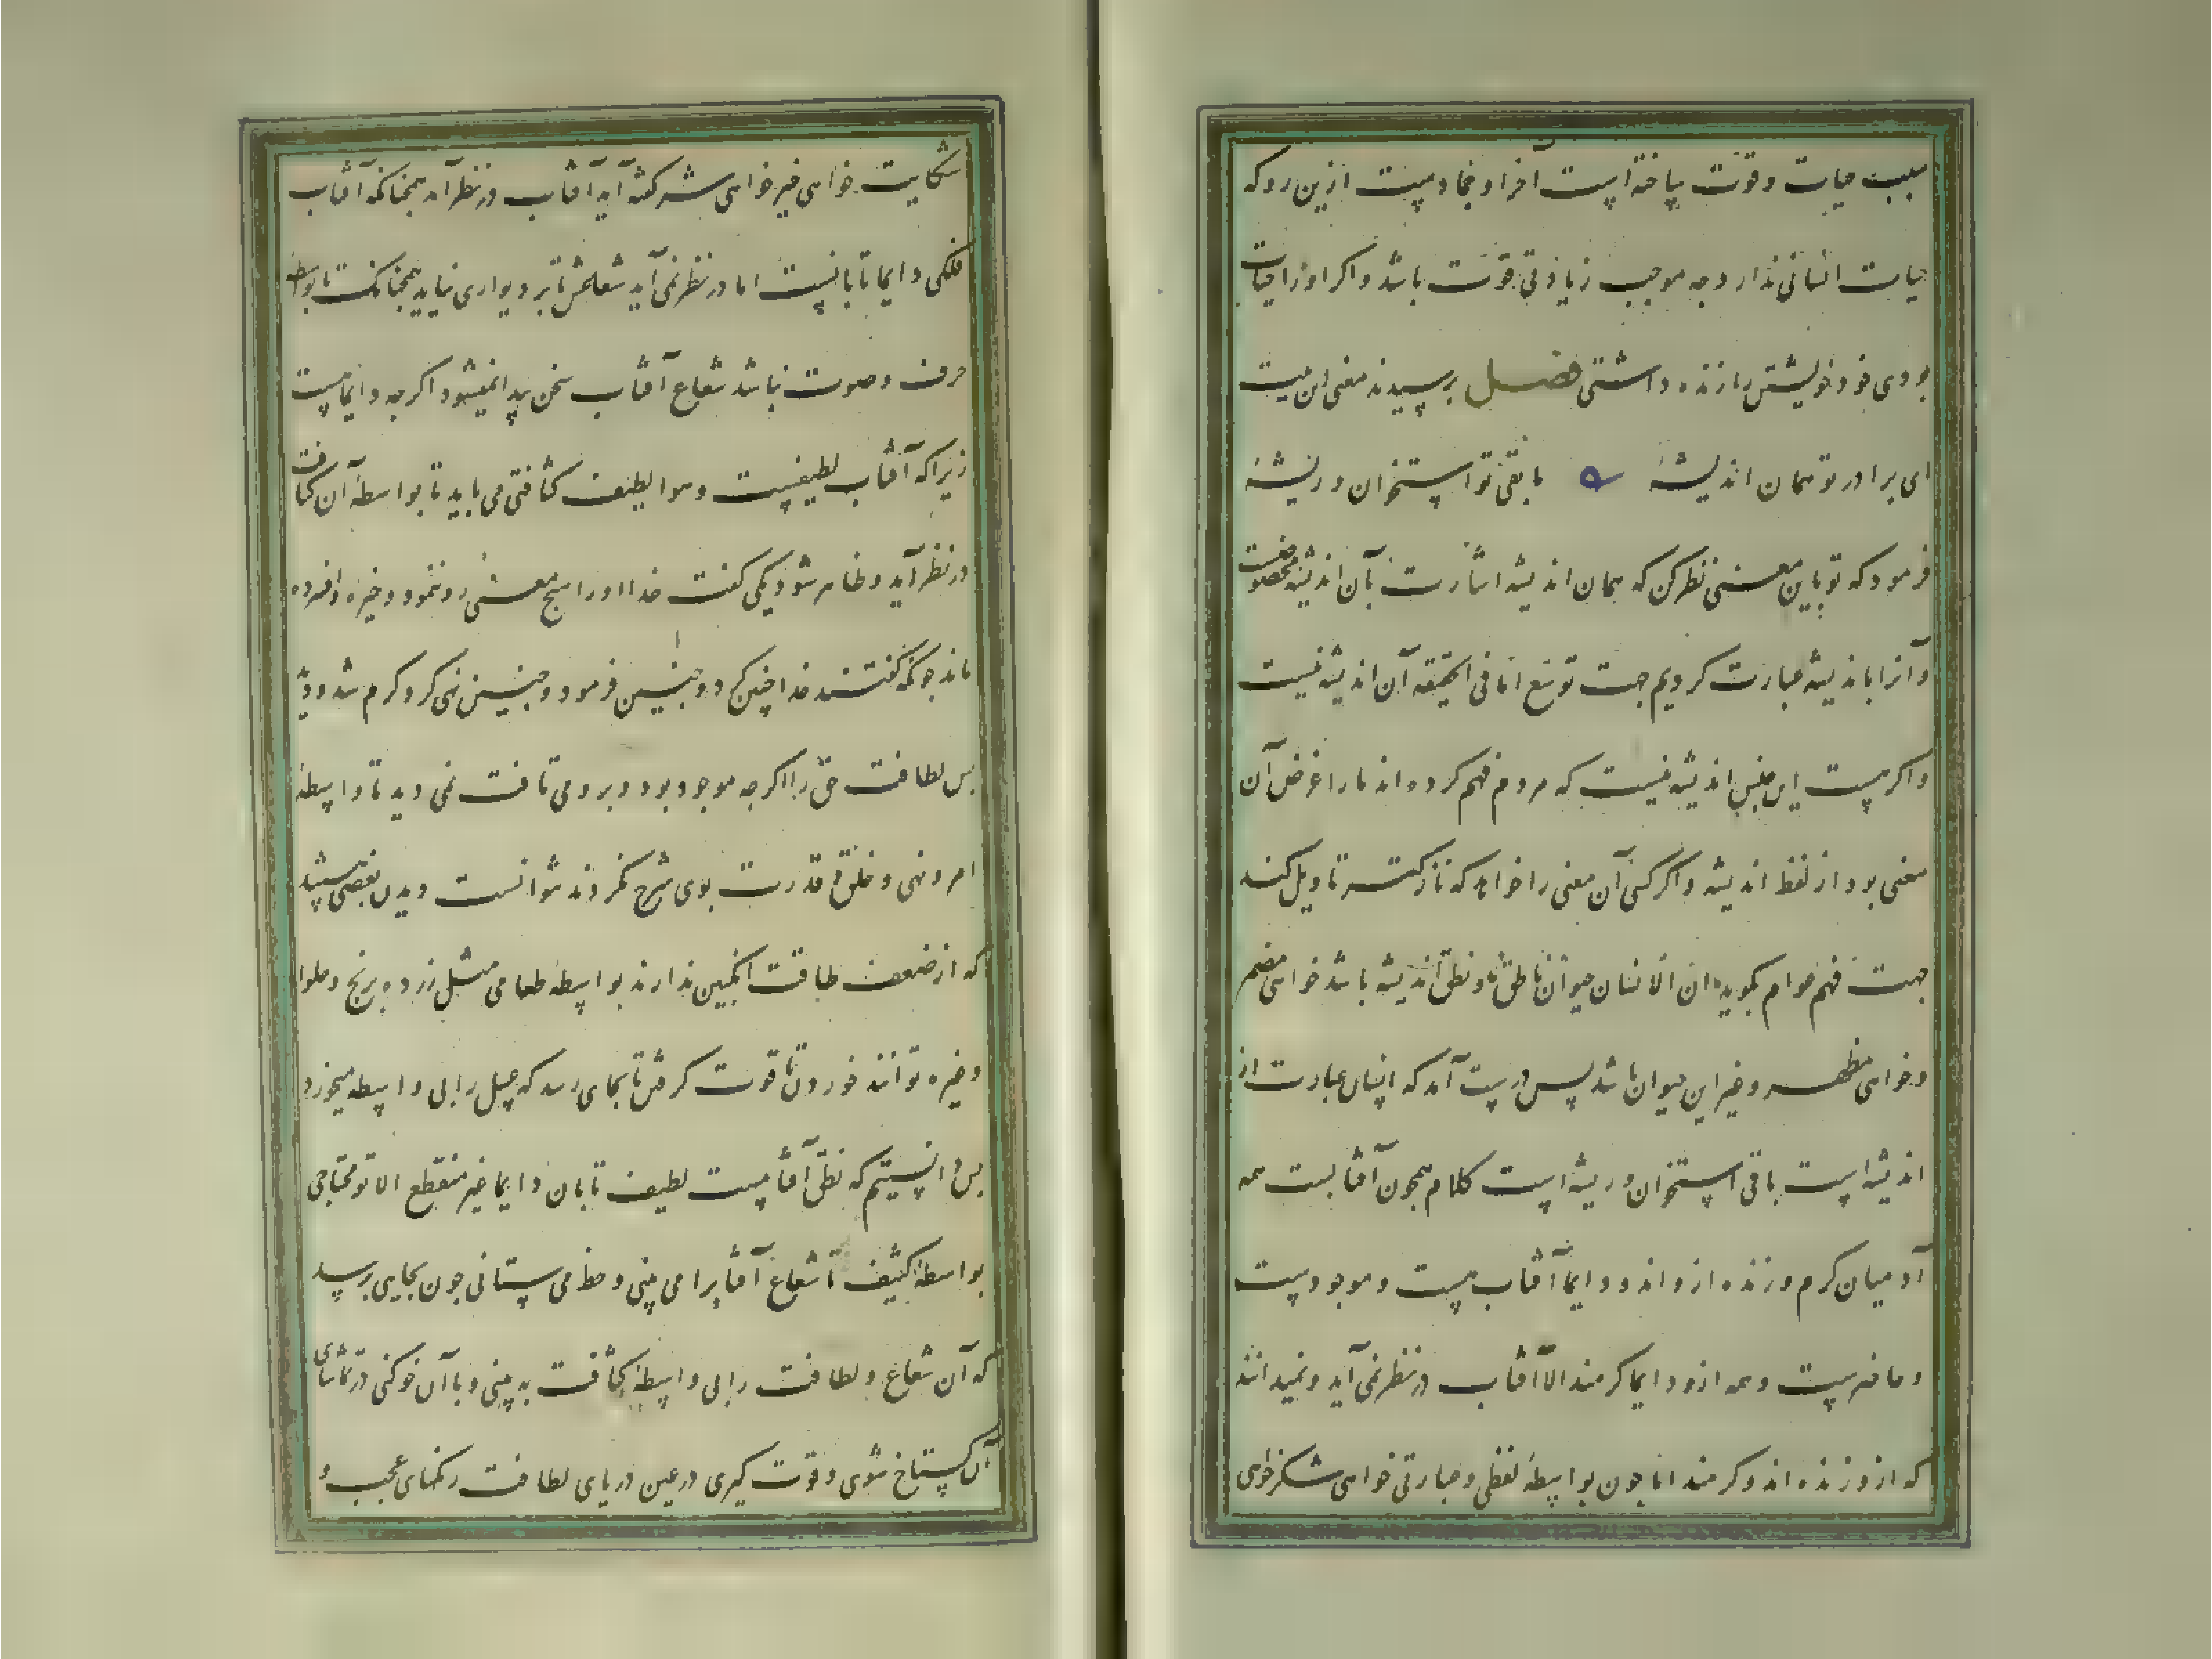 سبب حیات و قوت ساخته است آخر او جمادیست ازین رو که
حیات انسانی ندارد چه موجب زیادتی قوت باشد و اگر او را حیات
بودی خود خویشتن را زنده داشتی فصل پرسیدند معنی این بیت
ای برادر تو همان اندیشهٔ ما بقی تو استخوان و ریشهٔ
فرمود که تو باین معنی نظر کن که همان اندیشه اشارت بآن اندیشه مخصوصست
و آنرا باندیشه عبارت کردیم جهت توسع اما فی الحقیقه آن اندیشه نیست
و اگر هست این جنس اندیشه نیست که مردم فهم کرده اند ما را غرض آن
معنی بود از لفظ اندیشه و اگر کسی آن معنی را خواهد که نازلتر تاویل کند
جهت فهم عوام بگوید ان الانسان حیوان ناطق و نطق اندیشه باشد خواهی مضمر
و خواهی مظهر و غیر این حیوان باشد پس درست آمد که انسان عبارت از
اندیشه است باقی استخوان و ریشه است کلام همچون آفتابست همه
آدمیان گرم و زنده ازو اند و دایما آفتاب هست و موجودست
و حاضرست و همه ازو دایما گرمند الا آفتاب در نظر نمی آید و نمیدانند
که ازو زنده اند و گرمند اما چون بواسطهٔ لفظی و عبارتی خواهی شکر خواهی
شکایت خواهی خیر خواهی شر گفته آید آفتاب در نظر آید همچنانکه آفتاب
فلکی دایما تابانست اما در نظر نمی آید شعاعش تا بر دیواری نیاید همچنانک تا بواسطهٔ
حرف و صوت نباشد شعاع آفتاب سخن پیدا نمیشود اگرچه دایما هست
زیرا که آفتاب لطیفست و هو اللطیف کثافتی می باید تا بواسطهٔ آن کثافت
در نظر آید و ظاهر شود یکی گفت خدا او را هیچ معنی رو ننمود و خیره و افسرده
ماند چونکه گفتند خدا چنین کرد و چنین فرمود و چنین نهی کرد گرم شد و دید
پس لطافت حق را اگرچه موجود بود و برو می تافت نمی دید تا واسطهٔ
امر و نهی و خلق و قدرت بوی شرح نکردند نتوانست دیدن بعضی هستند
که از ضعف طاقت انگبین ندارند بواسطهٔ طعامی مثل زرده برنج و حلوا
و غیره توانند خوردن تا قوت گرفتن تا بجای رسد که عسل را بی واسطه میخورد
پس دانستیم که نطق آفتابیست لطیف تابان دایما غیر منقطع الا تو محتاجی
بواسطهٔ کثیف تا شعاع آفتاب را می بینی و حظ می ستانی چون بجایی برسد
که آن شعاع و لطافت را بی واسطهٔ کثافت به بینی و با آن خو کنی در تماشای
آن گستاخ شوی و قوت گیری در عین دریای لطافت رنگهای عجب و